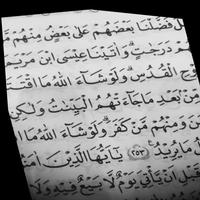 فَضَّلْنَا بَعْضَهُمْ عَلَىٰ بَعْضٍ مِنْهُمْ
دَرَجٰتٍ ۗ وَاٰتَيْنَا عِيْسَى ابْنَ مَرْيَمَ
الْقُدُسِ ۗ وَلَوْ شَآءَ اللّٰهُ مَا اقْتَتَلَ
مِّنْ بَعْدِ مَا جَآءَتْهُمُ الْبَيِّنٰتُ وَلٰكِنِ
وَمِنْهُمْ مَّنْ كَفَرَ ۗ وَلَوْ شَآءَ اللّٰهُ مَا
مَا يُرِيْدُ ﴿٢٥٣﴾ يٰٓاَيُّهَا الَّذِيْنَ اٰمَنُوْٓا
قَبْلِ اَنْ يَّأْتِيَ يَوْمٌ لَّا بَيْعٌ فِيْهِ وَلَا